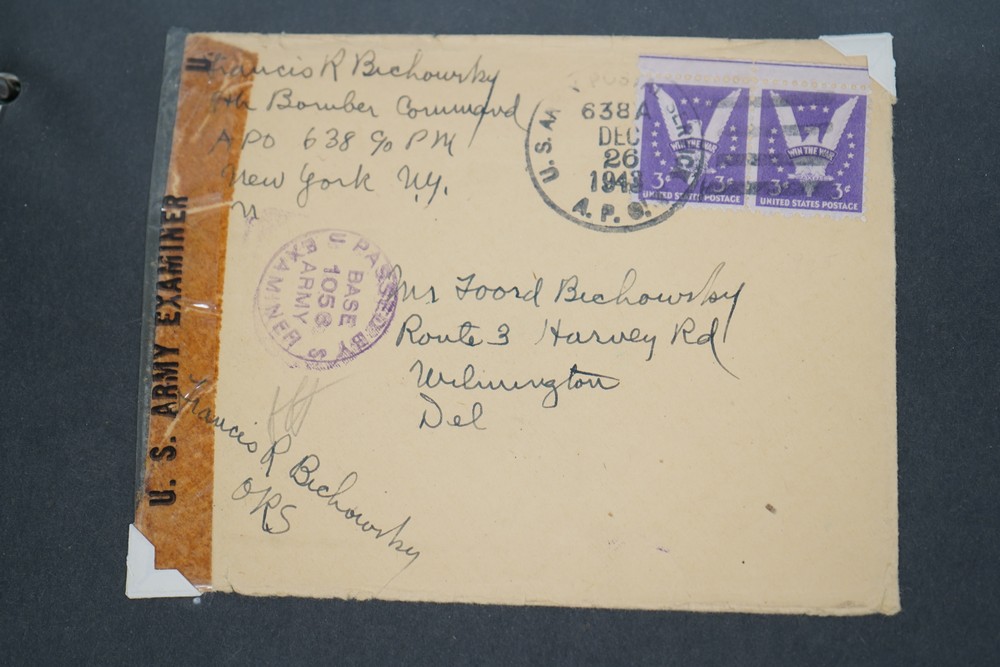 Francis R Bichowsky
8th Bomber Command
APO 638 c/o PM
New York N.Y.
U.S. ARMY EXAMINER
U.S. A
638A
DEC
26
1943
A. P. S.
WIN THE WAR
3¢ 3¢
UNITED STATES POSTAGE
WIN THE WAR
3¢ 3¢
UNITED STATES POSTAGE
PASSED BY
BASE
1056
ARMY
U S
ARMY EXAMINER
Mr Foord Bichowsky
Route 3 Harvey Rd
Wilmington
Del
Francis R Bichowsky
ORS